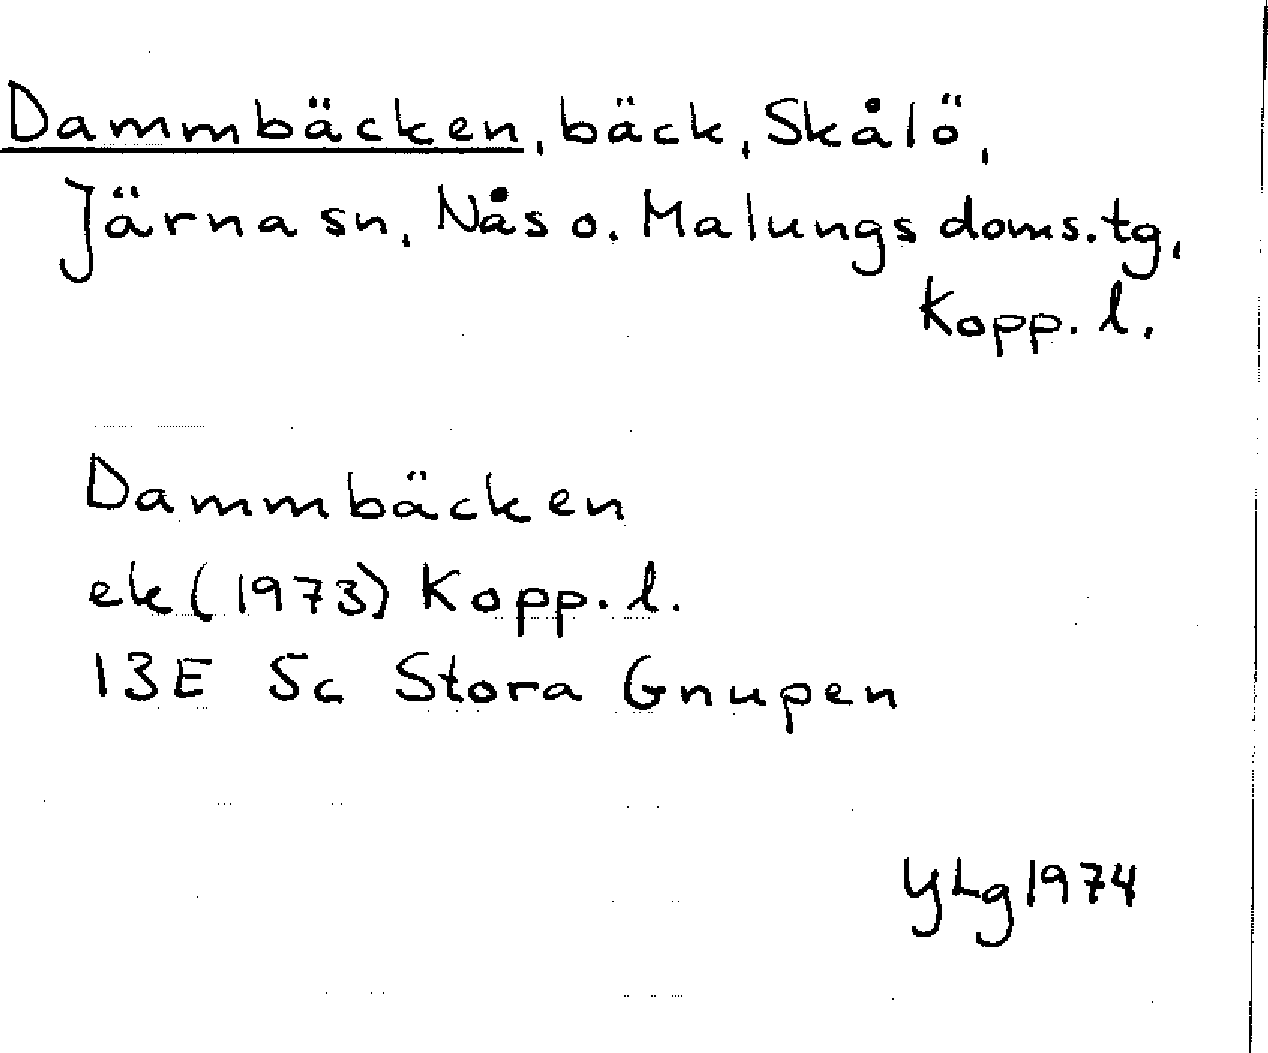 Dammbäcken, bäck, Skålö,
Järna sn, Nås o. Malungs doms.tg,
Kopp. l.
Dammbäcken
ek (1973) Kopp. l.
13E 5c Stora Gnupen
YLg 1974